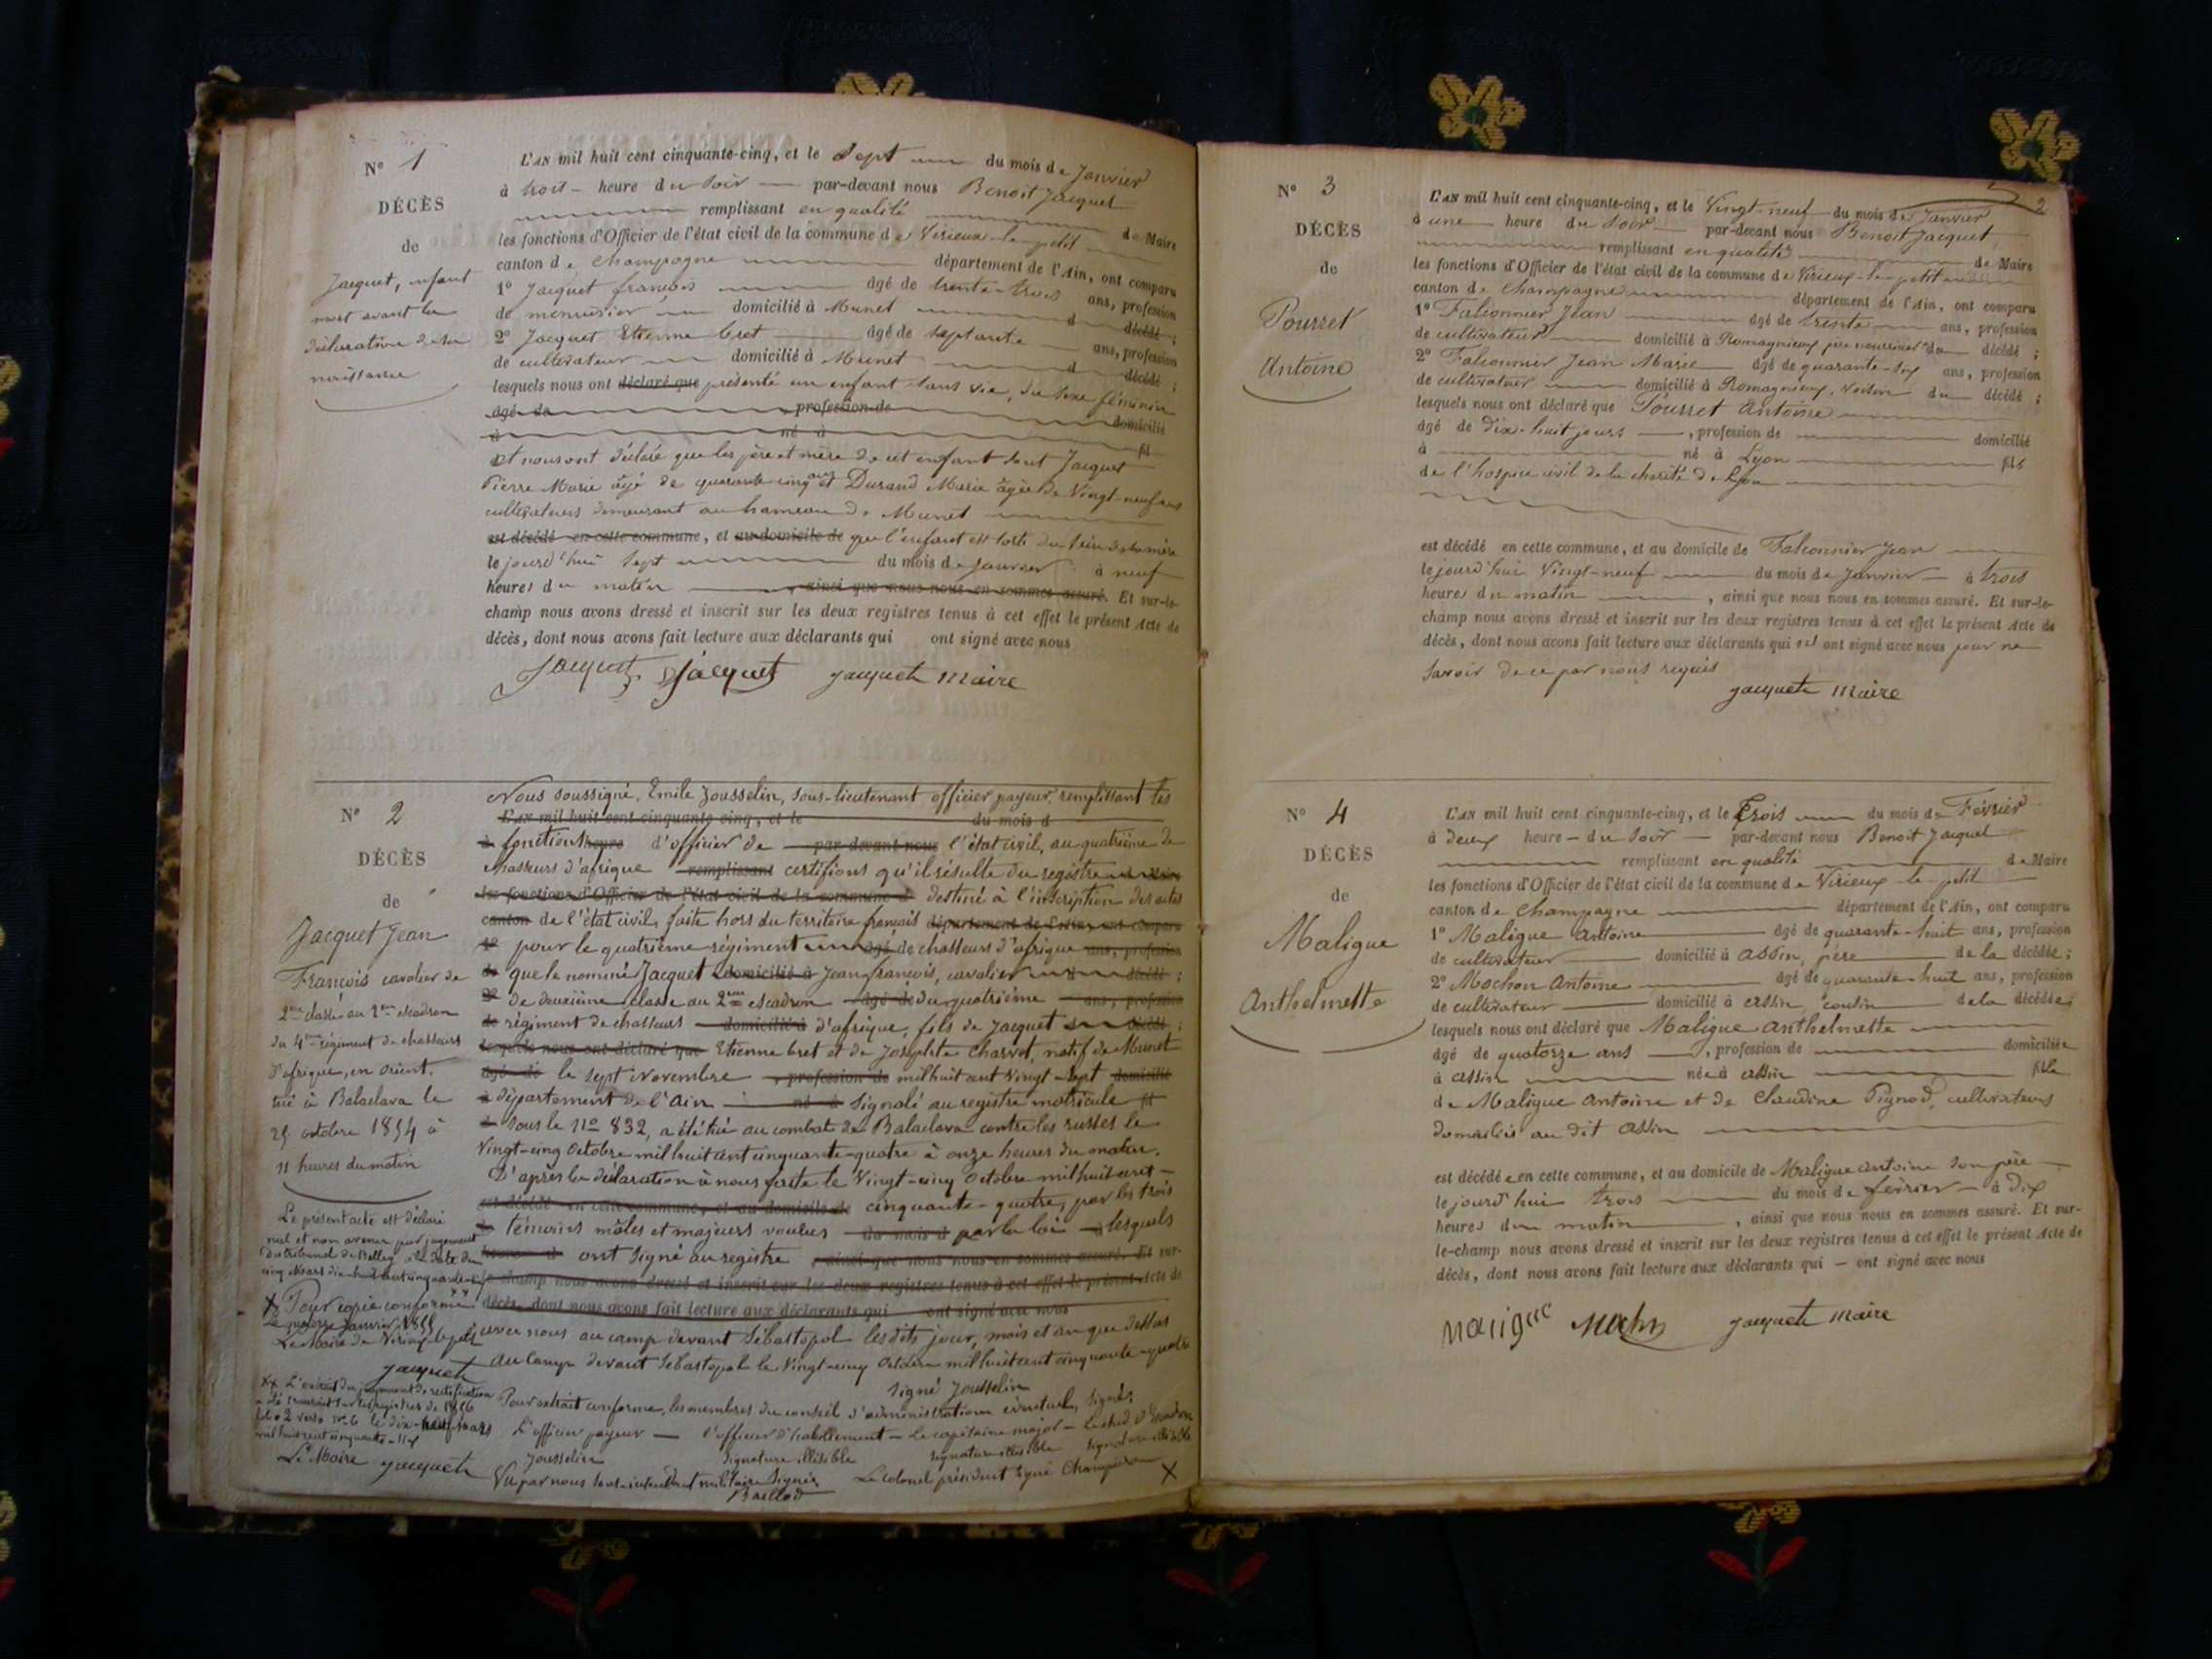 N° 1
DÉCÈS
de
Jacquet, enfant
mort avant la
déclaration de sa
naissance
L'AN mil huit cent cinquante-cinq, et le Sept du mois de Janvier
à trois heure du soir par-devant nous Benoit Jacquet
remplissant en qualité de Maire
les fonctions d'Officier de l'état civil de la commune de Virieux-le-petit
canton de Champagne département de l'Ain, ont comparu
1° Jacquet françois âgé de trente-trois ans, profession
de menuisier domicilié à Munet d décédé ;
2° Jacquet Etienne bret âgé de septante ans, profession
de cultivateur domicilié à Munet d décédé ;
lesquels nous ont déclaré que présenté un enfant sans vie, du sexe féminin
âgé de profession de domicilié
à né à fil
et nous ont déclaré que les père et mère de cet enfant sont Jacquet
Pierre Marie âgé de quarante-cinq ans et Durand Marie âgée de Vingt-neuf ans
cultivateurs demeurant au hameau de Munet
est décédé en cette commune, et au domicile de que l'enfant est sorti du sein de sa mère
le jourd'hui sept du mois de Janvier à neuf
heures du matin , ainsi que nous nous en sommes assuré. Et sur-le-
champ nous avons dressé et inscrit sur les deux registres tenus à cet effet le présent Acte de
décès, dont nous avons fait lecture aux déclarants qui ont signé avec nous
Jacquet Jacquet Jacquet Maire
N° 2
DÉCÈS
de
Jacquet Jean
François cavalier de
2me classe au 2me escadron
du 4me régiment de chasseurs
d'afrique, en Orient,
tué à Balaclava le
25 octobre 1854 à
11 heures du matin
Le présent acte est déclaré
nul et non avenu par jugement
du tribunal de Belley à la date du
cinq Mars dix-huit cent cinquante-six
X Pour copie conforme xx
Le quinze Janvier 1855
Le Maire de Virieux-le-petit
Jacquet
xx L'extrait du jugement de rectification
a été transcrit sur les registres de 1856
folio 2 verso N° 6 le dix-neuf mars
mil huit cent cinquante-six
Le Maire Jacquet
Nous soussigné, Emile Jousselin, sous-lieutenant officier payeur, remplissant les
L'AN mil huit cent cinquante-cinq, et le du mois d
à fonctions heure d'officier de par-devant nous l'état civil, au quatrième de
chasseurs d'afrique remplissant certifions qu'il résulte du registre
les fonctions d'Officier de l'état civil de la commune d destiné à l'inscription des actes
canton de l'état civil, faite hors du territoire français département de l'Ain, ont comparu
1° pour le quatrième régiment âgé de chasseurs d'afrique ans, profession
de que le nommé Jacquet domicilié à Jean françois, cavalier d décédé ;
2° de deuxième classe au 2me escadron âgé de du quatrième ans, profession
de régiment de chasseurs domicilié à d'afrique, fils de Jacquet décédé ;
lesquels nous ont déclaré que Etienne bret et de Josephte Charvet, natif de Munet
âgé de le sept Novembre , profession de mil huit cent vingt-sept domicilié
à département de l'Ain né à Signalé au registre matricule fil
d sous le N° 832, a été tué au combat de Balaclava contre les russes le
Vingt-cinq Octobre mil huit cent cinquante-quatre à onze heures du matin.
D'après la déclaration à nous faite le Vingt-cinq Octobre mil huit cent
est décédé en cette commune, et au domicile de cinquante-quatre, par les trois
le témoins mâles et majeurs voulus du mois d par la loi à lesquels
heures d ont signé au registre , ainsi que nous nous en sommes assuré. Et sur-
le-champ nous avons dressé et inscrit sur les deux registres tenus à cet effet le présent Acte de
décès, dont nous avons fait lecture aux déclarants qui ont signé avec nous
avec nous au camp devant Sébastopol les dits jour, mois et an que dessus
Au Camp devant Sébastopol le Vingt-cinq Octobre mil huit cent cinquante-quatre
Signé Jousselin
Pour extrait conforme, les membres du conseil d'administration éventuel, Signés
L'officier payeur — l'officier d'habillement — Le capitaine major — Le chef d'Escadron
Jousselin Signature illisible Signature illisible Signature illisible
Vu par nous sous-intendant militaire Signé Le Colonel président Signé
Baillod X
2
N° 3
DÉCÈS
de
Pourret
Antoine
L'AN mil huit cent cinquante-cinq, et le Vingt-neuf du mois de Janvier
à une heure du Soir par-devant nous Benoit Jacquet
remplissant en qualité de Maire
les fonctions d'Officier de l'état civil de la commune de Virieux-le-petit
canton de Champagne département de l'Ain, ont comparu
1° Falconnier Jean âgé de trente ans, profession
de cultivateur domicilié à Romagnieux père nourricier du décédé ;
2° Falconnier Jean Marie âgé de quarante-six ans, profession
de cultivateur domicilié à Romagnieux, voisin du décédé ;
lesquels nous ont déclaré que Pourret Antoine
âgé de dix-huit jours , profession de domicilié
à né à Lyon fils
de l'hospice civil de la charité de Lyon
est décédé en cette commune, et au domicile de Falconnier Jean
le jourd'hui Vingt-neuf du mois de Janvier à trois
heures du matin , ainsi que nous nous en sommes assuré. Et sur-le-
champ nous avons dressé et inscrit sur les deux registres tenus à cet effet le présent Acte de
décès, dont nous avons fait lecture aux déclarants qui n'ont signé avec nous pour ne
savoir de ce par nous requis
Jacquet Maire
N° 4
DÉCÈS
de
Maligue
Anthelmette
L'AN mil huit cent cinquante-cinq, et le Trois du mois de Février
à deux heure du Soir par-devant nous Benoit Jacquet
remplissant en qualité de Maire
les fonctions d'Officier de l'état civil de la commune de Virieux-le-petit
canton de Champagne département de l'Ain, ont comparu
1° Maligue Antoine âgé de quarante-huit ans, profession
de cultivateur domicilié à assin, père de la décédée ;
2° Mochon Antoine âgé de quarante-huit ans, profession
de cultivateur domicilié à assin, cousin de la décédée ;
lesquels nous ont déclaré que Maligue anthelmette
âgé de quatorze ans , profession de domiciliée
à assin née à assin fille
de Maligue Antoine et de Claudine Pignod, cultivateurs
domiciliés au dit assin
est décédée en cette commune, et au domicile de Maligue Antoine son père
le jourd'hui trois du mois de février à dix
heures du matin , ainsi que nous nous en sommes assuré. Et sur-
le-champ nous avons dressé et inscrit sur les deux registres tenus à cet effet le présent Acte de
décès, dont nous avons fait lecture aux déclarants qui — ont signé avec nous
Maligue Jacquet Maire